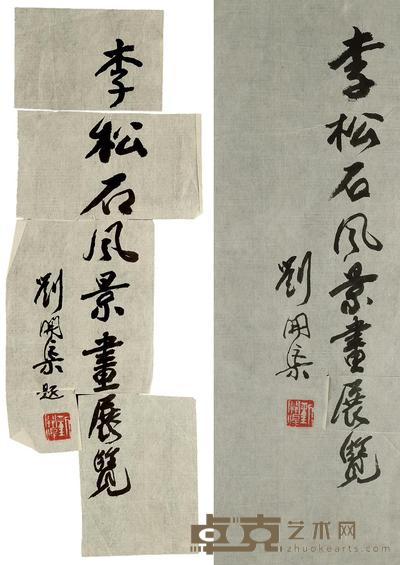 李松石风景畫展覽
劉開渠题
李松石风景畫展覽
劉開渠
卓克艺术网
zhuokearts.com